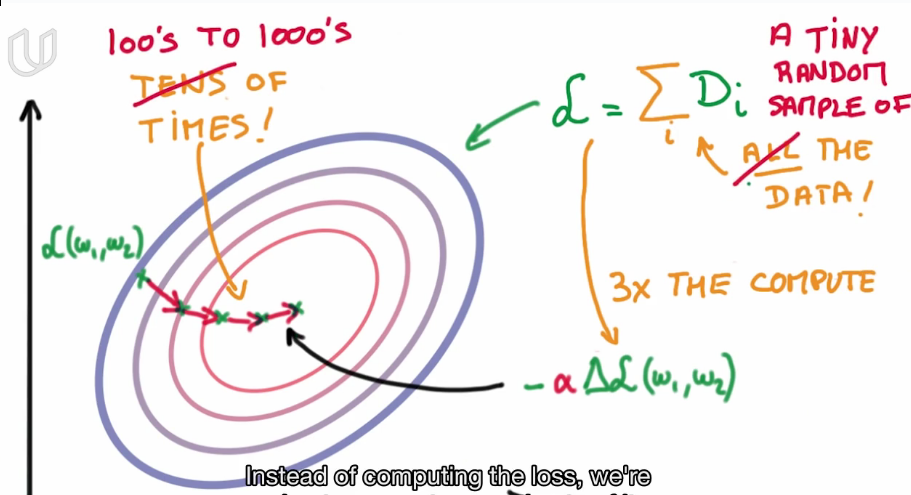 100's TO 1000's
TENS OF
TIMES!
L = Σ i Di
A TINY
RANDOM
SAMPLE OF
ALL THE
DATA!
L(ω1,ω2)
3x THE COMPUTE
- α ΔL(ω1,ω2)
Instead of computing the loss, we're